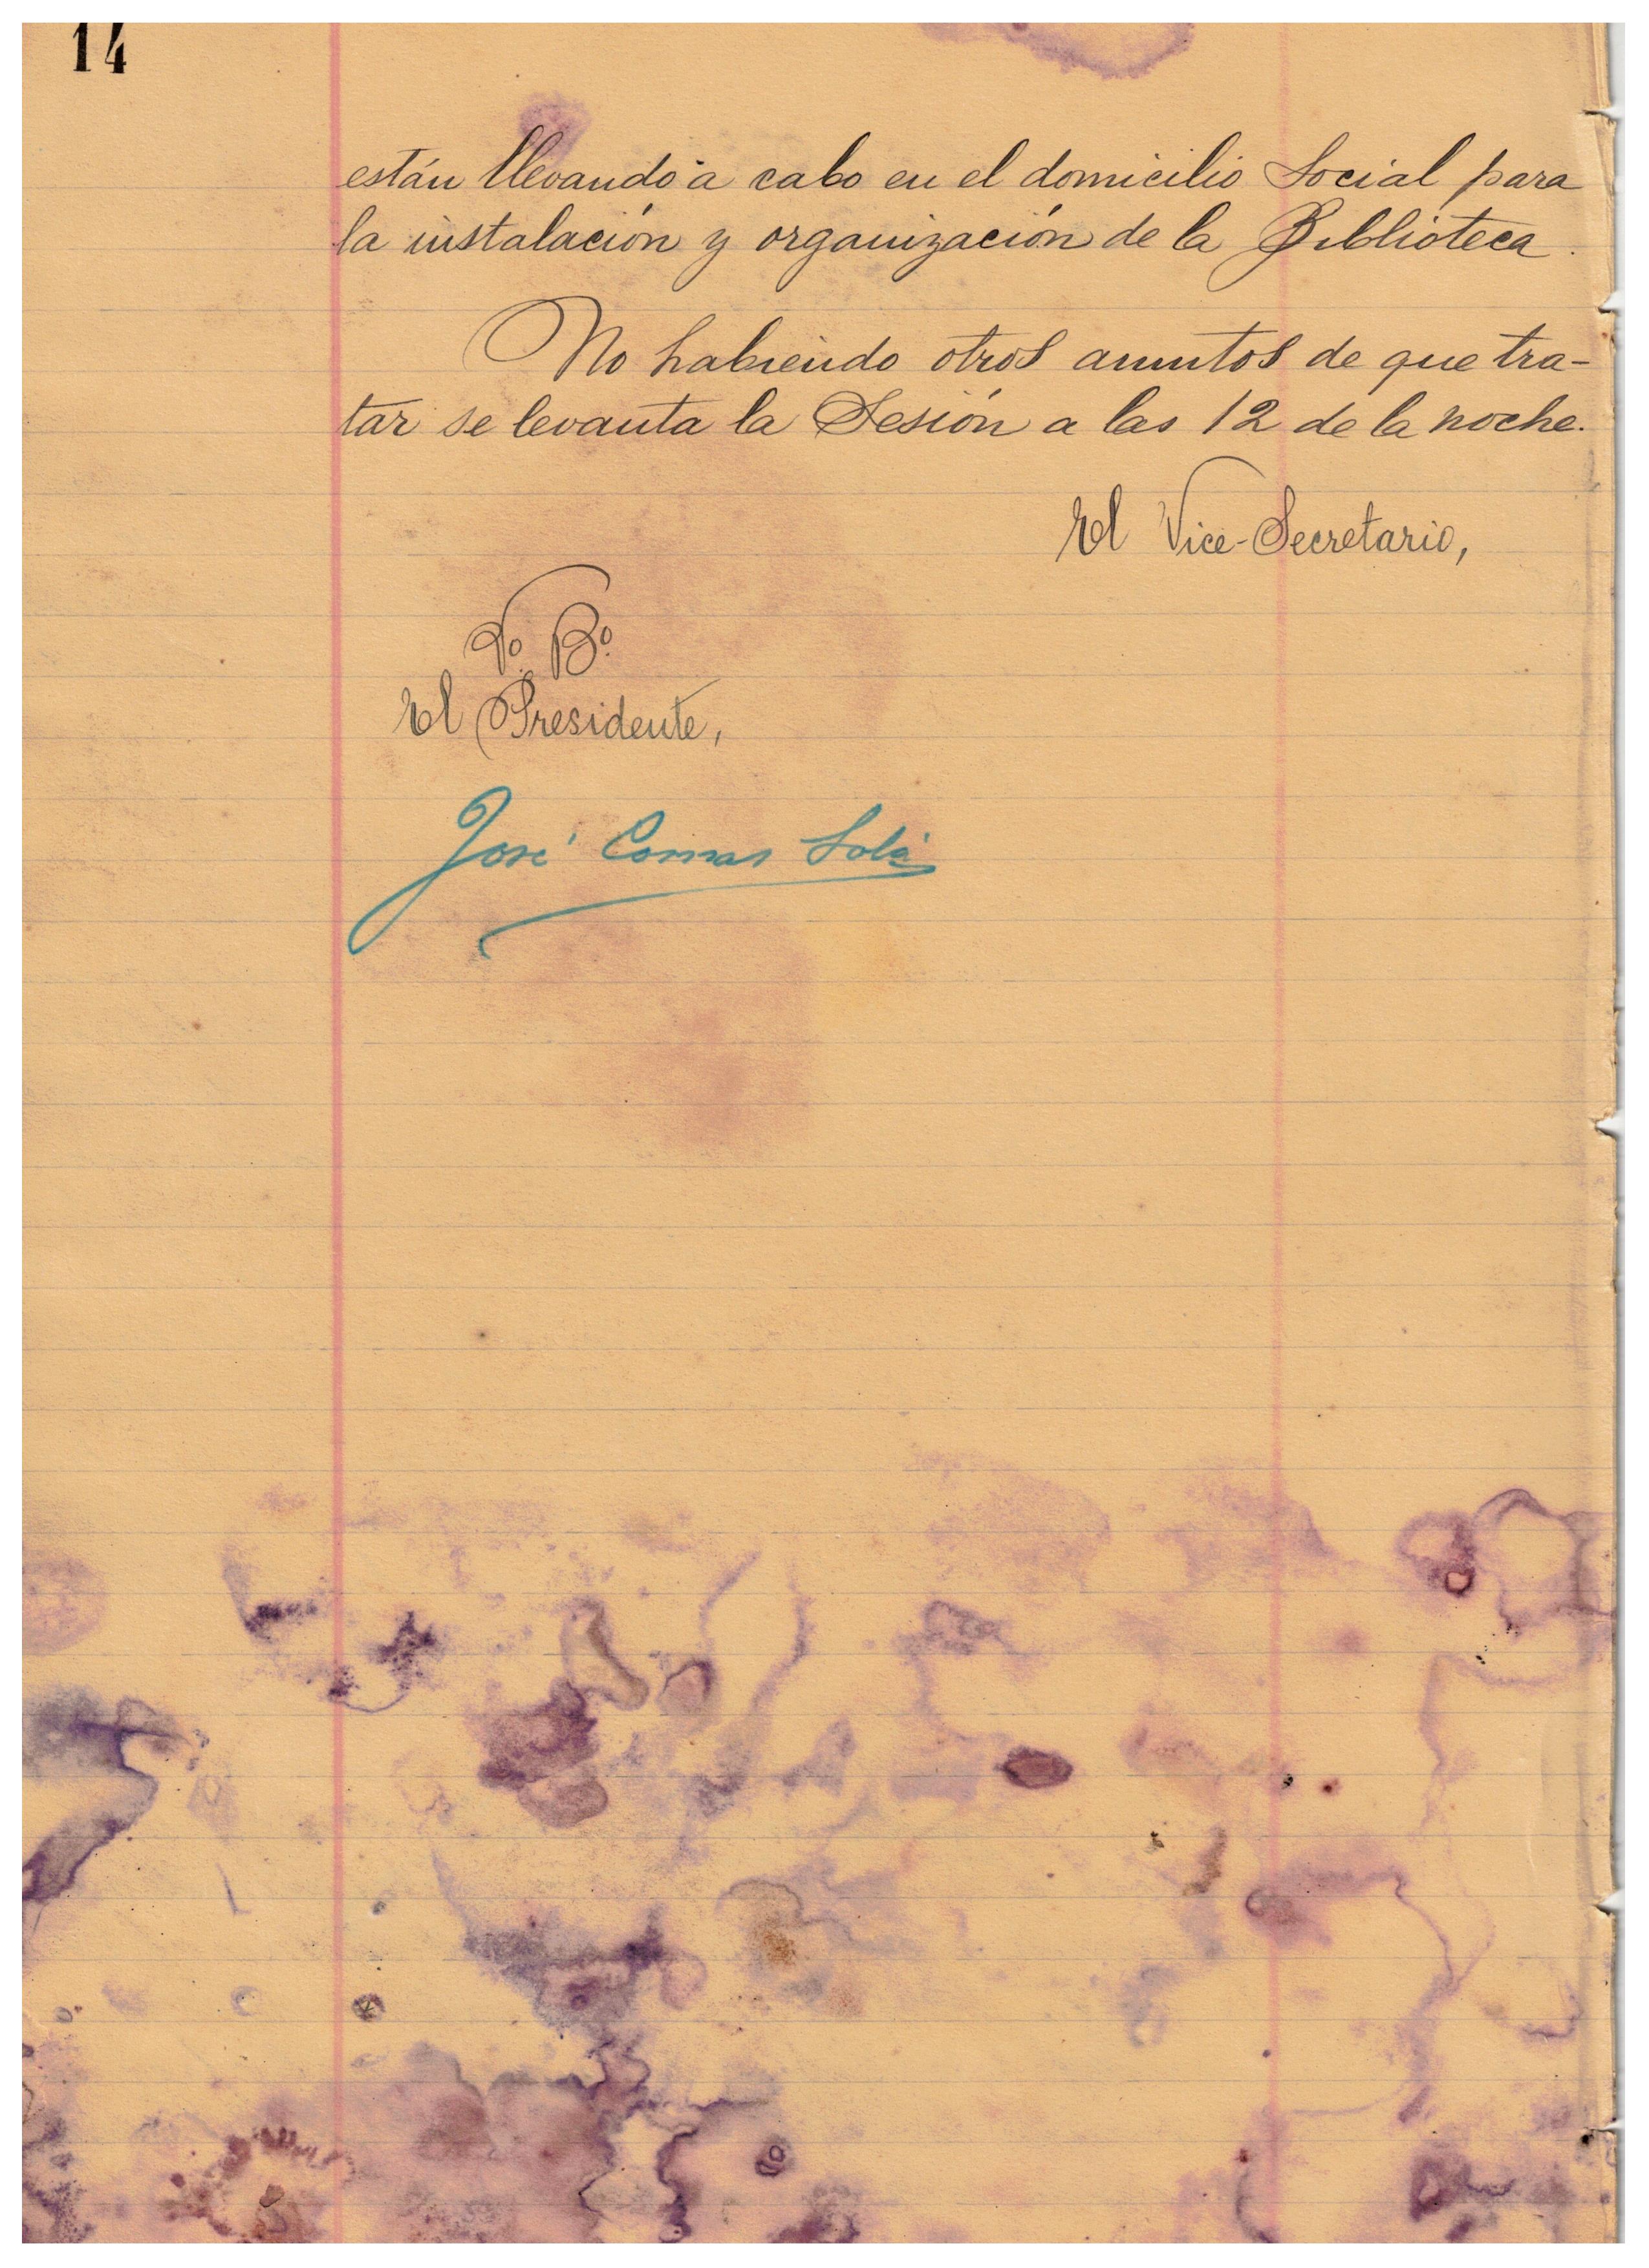 14
están llevando a cabo en el domicilio Social para
la instalación y organización de la Biblioteca.
No habiendo otros asuntos de que tra-
tar se levanta la Sesión a las 12 de la noche.
El Vice-Secretario,
Vº. Bº.
El Presidente,
José Comas Solá